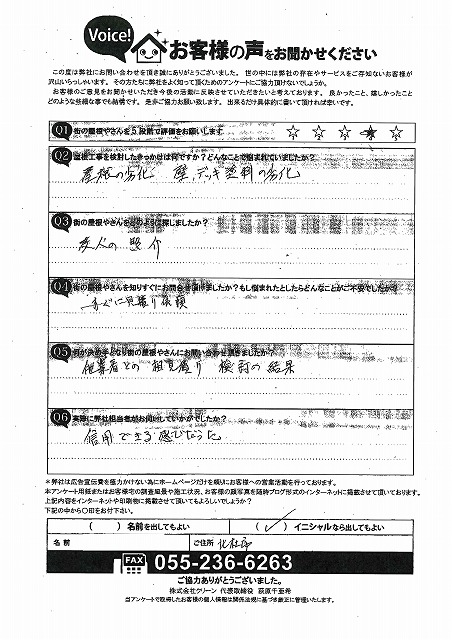 Voice!
お客様の声をお聞かせください
この度は弊社にお問い合わせを頂き誠にありがとうございました。世の中には弊社の存在やサービスをご存知ないお客様が
沢山いらっしゃいます。その方たちに弊社をよく知って頂くためのアンケートにご協力頂けないでしょうか。
お客様のご意見をお聞かせいただき今後の活動に反映させていただきたいと考えております。良かったこと、嬉しかったこと
どのような些細な事でも結構です。是非ご協力お願い致します。出来るだけ具体的に書いて頂ければ幸いです。
Q1 街の屋根やさんを5段階で評価をお願いします ☆ ☆ ☆ ★ ☆
Q2 屋根工事を検討したきっかけは何ですか？どんなことで悩まれていましたか？
屋根の劣化 壁、デッキ塗料の劣化
Q3 街の屋根やさんをどのように探しましたか？
友人の紹介
Q4 街の屋根やさんを知りすぐにお問合せ頂けましたか？もし悩まれたとしたらどんなことがご不安でしたか？
すぐに見積り依頼
Q5 何が決め手となり街の屋根やさんにお問い合わせ頂きましたか？
他業者との相見積り 検討の結果
Q6 実際に弊社担当者がお伺いしていかがでしたか？
信用できる感じだった
＊弊社は広告宣伝費を極力かけない為にホームページだけを頼りにお客様への営業活動を行っております。
本アンケート用紙またはお客様宅の調査風景や施工状況、お客様の顔写真を随時ブログ形式のインターネットに掲載させて頂いております。
上記内容をインターネットや印刷物に掲載させて頂いてもよろしいでしょうか？
下記の中から〇印をお付下さい。
（ ）名前を出してもよい （✓）イニシャルなら出してもよい
名前 ご住所 北杜市
FAX 055-236-6263
ご協力ありがとうございました。
株式会社クリーン 代表取締役 萩原千亜希
当アンケートで取得したお客様の個人情報は関係法規に基づき厳正に管理いたします。